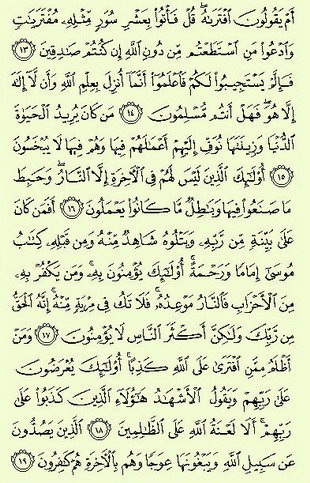 أَمْ يَقُولُونَ ٱفْتَرَىٰهُ ۖ قُلْ فَأْتُوا۟ بِعَشْرِ سُوَرٍ مِّثْلِهِۦ مُفْتَرَيَٰتٍ
وَٱدْعُوا۟ مَنِ ٱسْتَطَعْتُم مِّن دُونِ ٱللَّهِ إِن كُنتُمْ صَٰدِقِينَ ﴿١٣﴾
فَإِلَّمْ يَسْتَجِيبُوا۟ لَكُمْ فَٱعْلَمُوٓا۟ أَنَّمَآ أُنزِلَ بِعِلْمِ ٱللَّهِ وَأَن لَّآ إِلَٰهَ
إِلَّا هُوَ ۖ فَهَلْ أَنتُم مُّسْلِمُونَ ﴿١٤﴾ مَن كَانَ يُرِيدُ ٱلْحَيَوٰةَ
ٱلدُّنْيَا وَزِينَتَهَا نُوَفِّ إِلَيْهِمْ أَعْمَٰلَهُمْ فِيهَا وَهُمْ فِيهَا لَا يُبْخَسُونَ
﴿١٥﴾ أُو۟لَٰٓئِكَ ٱلَّذِينَ لَيْسَ لَهُمْ فِى ٱلْءَاخِرَةِ إِلَّا ٱلنَّارُ ۖ وَحَبِطَ
مَا صَنَعُوا۟ فِيهَا وَبَٰطِلٌ مَّا كَانُوا۟ يَعْمَلُونَ ﴿١٦﴾ أَفَمَن كَانَ
عَلَىٰ بَيِّنَةٍ مِّن رَّبِّهِۦ وَيَتْلُوهُ شَاهِدٌ مِّنْهُ وَمِن قَبْلِهِۦ كِتَٰبُ
مُوسَىٰٓ إِمَامًا وَرَحْمَةً ۚ أُو۟لَٰٓئِكَ يُؤْمِنُونَ بِهِۦ ۚ وَمَن يَكْفُرْ بِهِۦ
مِنَ ٱلْأَحْزَابِ فَٱلنَّارُ مَوْعِدُهُۥ ۚ فَلَا تَكُ فِى مِرْيَةٍ مِّنْهُ ۚ إِنَّهُ ٱلْحَقُّ
مِن رَّبِّكَ وَلَٰكِنَّ أَكْثَرَ ٱلنَّاسِ لَا يُؤْمِنُونَ ﴿١٧﴾ وَمَنْ
أَظْلَمُ مِمَّنِ ٱفْتَرَىٰ عَلَى ٱللَّهِ كَذِبًا ۚ أُو۟لَٰٓئِكَ يُعْرَضُونَ
عَلَىٰ رَبِّهِمْ وَيَقُولُ ٱلْأَشْهَٰدُ هَٰٓؤُلَآءِ ٱلَّذِينَ كَذَبُوا۟ عَلَىٰ
رَبِّهِمْ ۚ أَلَا لَعْنَةُ ٱللَّهِ عَلَى ٱلظَّٰلِمِينَ ﴿١٨﴾ ٱلَّذِينَ يَصُدُّونَ
عَن سَبِيلِ ٱللَّهِ وَيَبْغُونَهَا عِوَجًا وَهُم بِٱلْءَاخِرَةِ هُمْ كَٰفِرُونَ ﴿١٩﴾